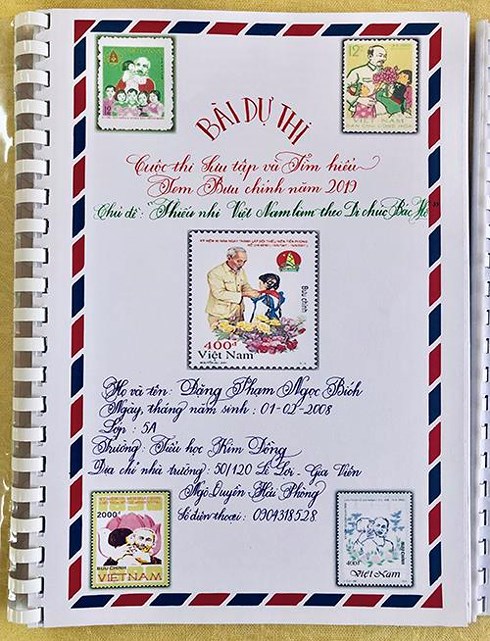 BÀI DỰ THI
Cuộc thi Sưu tập và Tìm hiểu
Tem Bưu chính năm 2019
Chủ đề: "Thiếu nhi Việt Nam làm theo Di chúc Bác Hồ"
12
VIỆT NAM
Bưu chính
400đ
Việt Nam
Họ và tên: Đặng Phạm Ngọc Bích
Ngày, tháng năm sinh: 01-02-2008
Lớp: 5A
Trường: Tiểu học Kim Đồng
Địa chỉ nhà trường: 50/120 Lê Lợi - Gia Viên
Ngô Quyền Hải Phòng
Số điện thoại: 0904318528
2000đ
BƯU CHÍNH
VIỆT NAM
400đ
Việt Nam